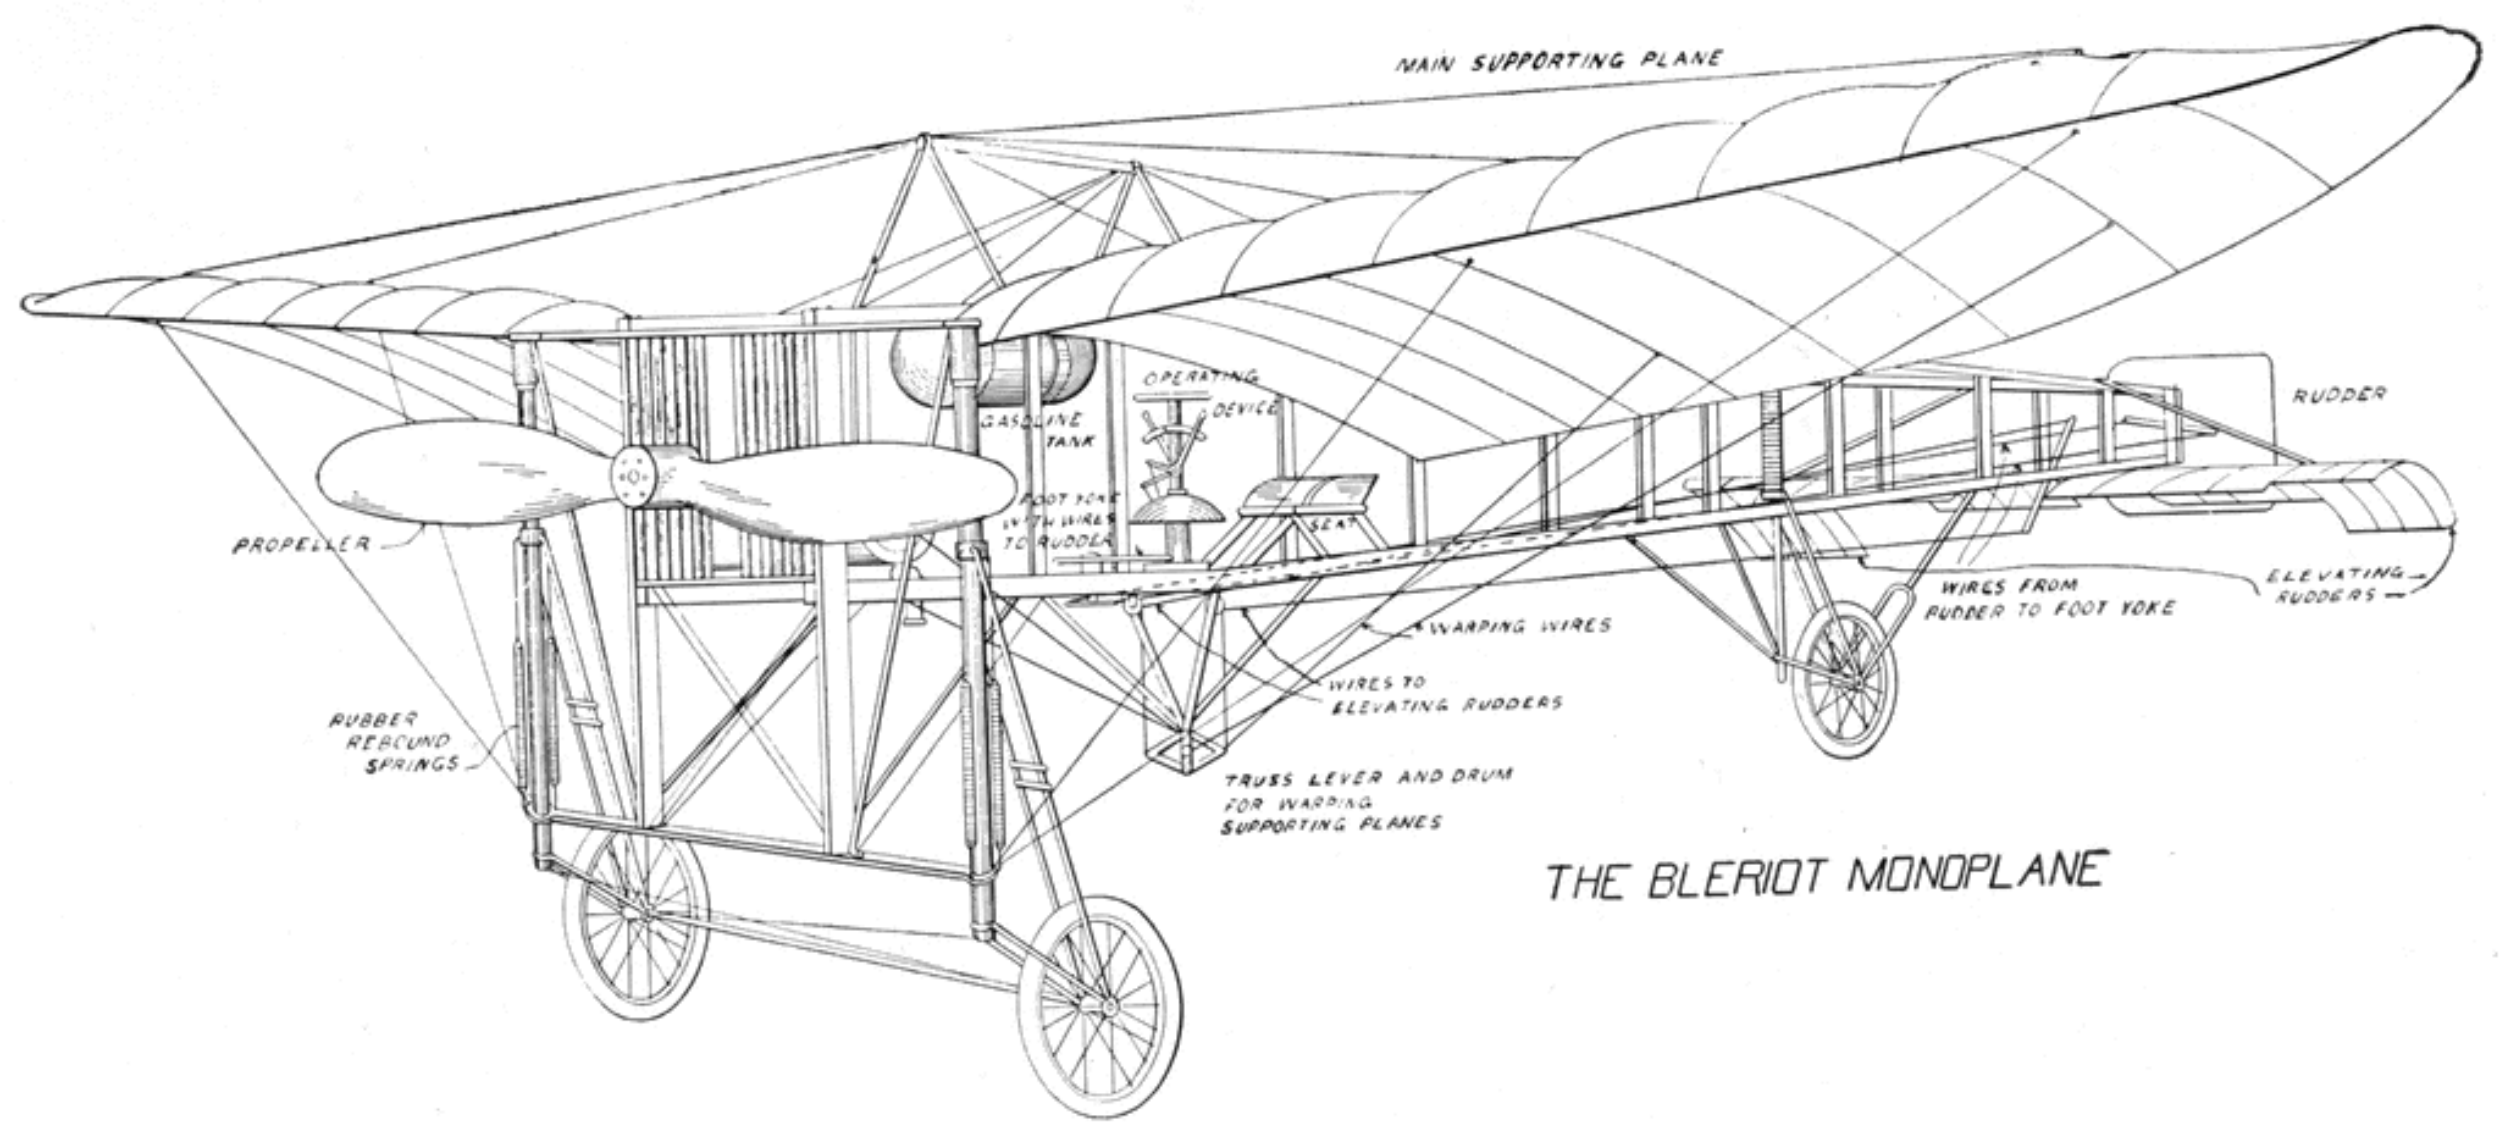 MAIN SUPPORTING PLANE
OPERATING
DEVICE
GASOLINE
TANK
RUDDER
FOOT YOKE
WITH WIRES
TO RUDDER
SEAT
PROPELLER
ELEVATING
RUDDERS
WIRES FROM
RUDDER TO FOOT YOKE
WARPING WIRES
WIRES TO
ELEVATING RUDDERS
RUBBER
REBOUND
SPRINGS
TRUSS LEVER AND DRUM
FOR WARPING
SUPPORTING PLANES
THE BLERIOT MONOPLANE